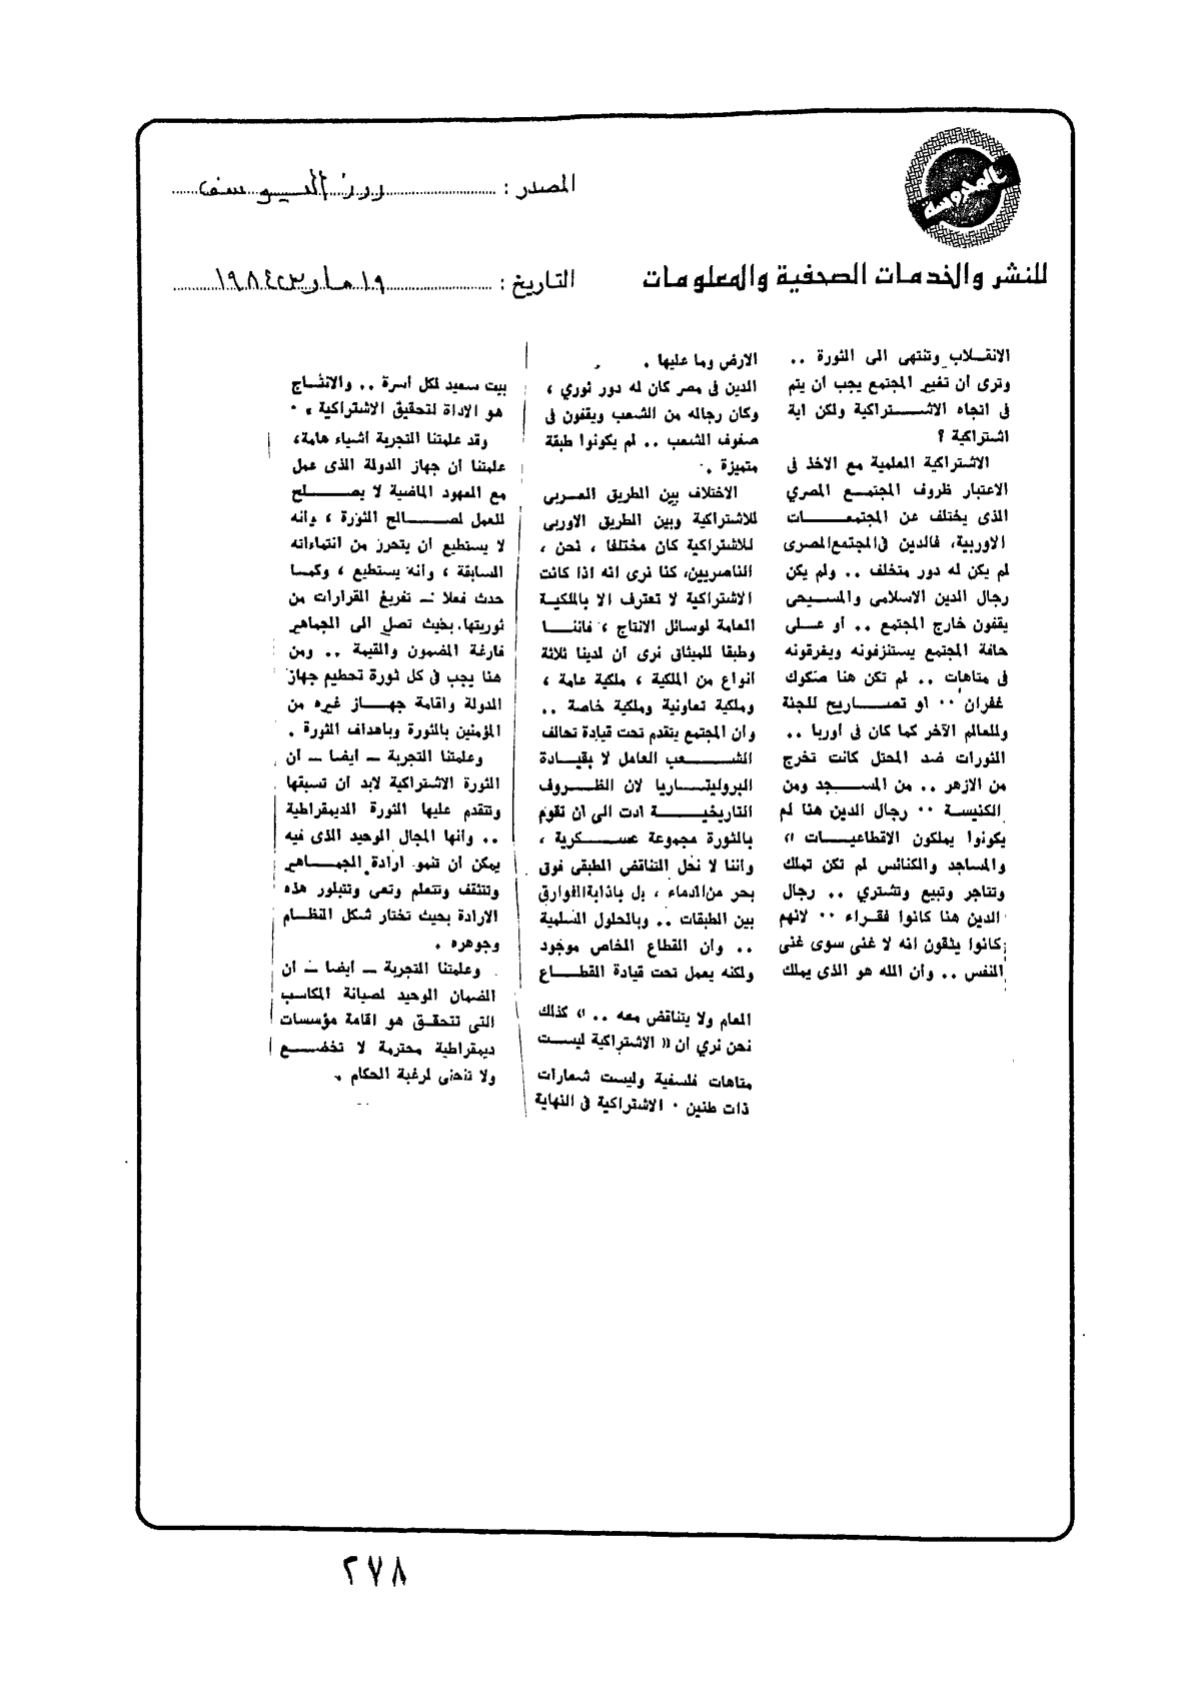 المحروسة
المصدر : روز اليوسف
للنشر والخدمات الصحفية والمعلومات
التاريخ : ١٩ مارس ١٩٨٤
الانقلاب وتنتهى الى الثورة ..
وترى ان تغير المجتمع يجب ان يتم
فى اتجاه الاشتراكية ولكن اية
اشتراكية ؟
الاشتراكية العلمية مع الاخذ فى
الاعتبار ظروف المجتمع المصري
الذى يختلف عن المجتمعات
الاوربية، فالدين فى المجتمع المصرى
لم يكن له دور متخلف .. ولم يكن
رجال الدين الاسلامى والمسيحى
يقفون خارج المجتمع .. او على
حافة المجتمع يستنزفونه ويغرقونه
فى متاهات .. لم تكن هنا صكوك
غفران .. او تصاريح للجنة
وللعالم الآخر كما كان فى أوربا ..
الثورات ضد المحتل كانت تخرج
من الازهر .. من المسجد ومن
الكنيسة .. رجال الدين هنا لم
يكونوا يملكون الاقطاعيات »
والمساجد والكنائس لم تكن تملك
وتتاجر وتبيع وتشتري .. رجال
الدين هنا كانوا فقراء .. لانهم
كانوا يثقون انه لا غنى سوى غنى
النفس .. وأن الله هو الذى يملك
الارض وما عليها .
الدين فى مصر كان له دور ثوري ،
وكان رجاله من الشعب ويقفون فى
صفوف الشعب .. لم يكونوا طبقة
متميزة .
الاختلاف بين الطريق العربى
للاشتراكية وبين الطريق الاوربى
للاشتراكية كان مختلفا ، نحن ،
الناصريين، كنا نرى انه اذا كانت
الاشتراكية لا تعترف الا بالملكية
العامة لوسائل الانتاج ، فاننا
وطبقا للميثاق نرى ان لدينا ثلاثة
انواع من الملكية ، ملكية عامة ،
وملكية تعاونية وملكية خاصة ..
وأن المجتمع يتقدم تحت قيادة تحالف
الشعب العامل لا بقيادة
البروليتاريا لان الظروف
التاريخية ادت الى ان تقوم
بالثورة مجموعة عسكرية ،
وأننا لا نحل التناقض الطبقى فوق
بحر من الدماء ، بل باذابة الفوارق
بين الطبقات .. وبالحلول السلمية
.. وأن القطاع الخاص موجود
ولكنه يعمل تحت قيادة القطاع
العام ولا يتناقض معه .. » كذلك
نحن نري ان « الاشتراكية ليست
متاهات فلسفية وليست شعارات
ذات طنين . الاشتراكية فى النهاية
بيت سعيد لكل أسرة .. والانتاج
هو الاداة لتحقيق الاشتراكية » .
وقد علمتنا التجربة اشياء هامة،
علمتنا ان جهاز الدولة الذى عمل
مع العهود الماضية لا يصلح
للعمل لصالح الثورة ، وانه
لا يستطيع ان يتحرر من انتماءاته
السابقة ، وأنه يستطيع ، وكما
حدث فعلا ـ تفريغ القرارات من
ثوريتها، بحيث تصل الى الجماهير
فارغة المضمون والقيمة .. ومن
هنا يجب فى كل ثورة تحطيم جهاز
الدولة واقامة جهاز غيره من
المؤمنين بالثورة وباهداف الثورة .
وعلمتنا التجربة ـ ايضا ـ أن
الثورة الاشتراكية لابد ان تسبقها
وتتقدم عليها الثورة الديمقراطية
.. وانها المجال الوحيد الذى فيه
يمكن ان تنمو ارادة الجماهير
وتتثقف وتتعلم وتعى وتتبلور هذه
الارادة بحيث تختار شكل النظام
وجوهره .
وعلمتنا التجربة ـ ايضا ـ ان
الضمان الوحيد لصيانة المكاسب
التى تتحقق هو اقامة مؤسسات
ديمقراطية محترمة لا تخضع
ولا تنحنى لرغبة الحكام .
٢٧٨